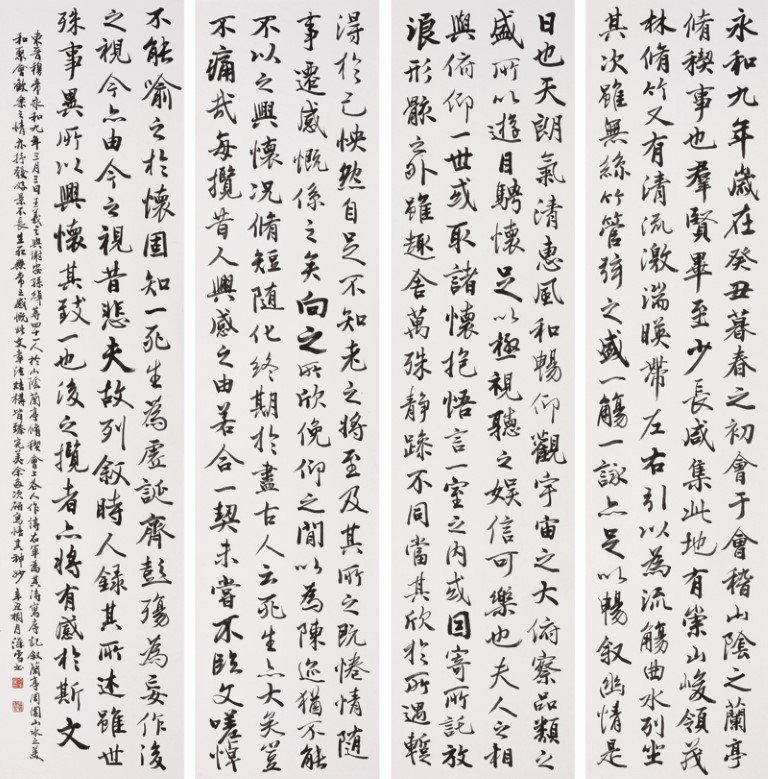 永和九年歲在癸丑暮春之初會于會稽山陰之蘭亭
脩稧事也羣賢畢至少長咸集此地有崇山峻領茂
林脩竹又有清流激湍暎帶左右引以為流觴曲水列坐
其次雖無絲竹管弦之盛一觴一詠亦足以暢敘幽情是
日也天朗氣清惠風和暢仰觀宇宙之大俯察品類之
盛所以遊目騁懷足以極視聽之娛信可樂也夫人之相
與俯仰一世或取諸懷抱悟言一室之內或因寄所託放
浪形骸之外雖趣舍萬殊靜躁不同當其欣於所遇蹔
得於己怏然自足不知老之將至及其所之既惓情隨
事遷感慨係之矣向之所欣俛仰之閒以為陳迹猶不能
不以之興懷況脩短隨化終期於盡古人云死生亦大矣豈
不痛哉每攬昔人興感之由若合一契未嘗不臨文嗟悼
不能喻之於懷固知一死生為虛誕齊彭殤為妄作後
之視今亦由今之視昔悲夫故列敘時人錄其所述雖世
殊事異所以興懷其致一也後之攬者亦將有感於斯文
東晉穆帝永和九年三月三日王羲之與謝安孫綽等四十一人於山陰蘭亭脩稧會上各人作詩右軍為其詩寫序記敘蘭亭周圍山水之美
和聚會歡樂之情亦抒發好景不長生死無常之感慨此文章法結構皆臻完美余每次研寫悟其神妙辛丑桐月